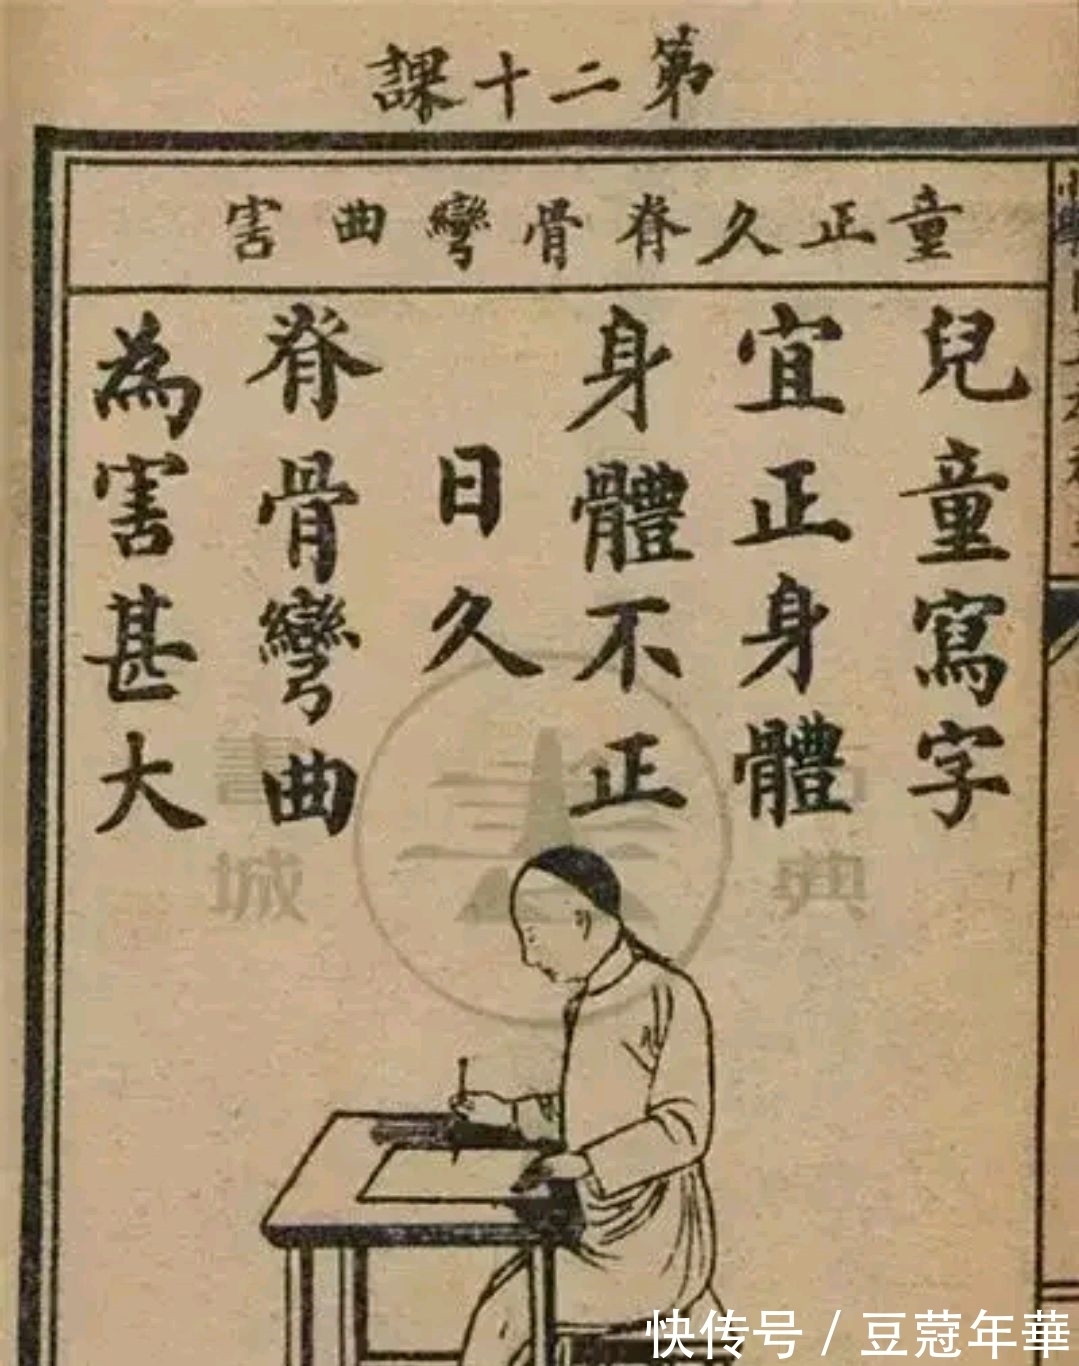 第二十課
童正久脊骨彎曲害
兒童寫字
宜正身體
身體不正
日久
脊骨彎曲
為害甚大
典
書城
快传号 / 豆蔻年華